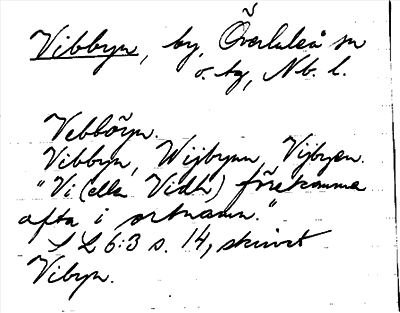 Vibbyn, by, Överluleå sn
o. tg, Nb. l.
Vebböyn.
Vibbyn, Wijbynn, Vijbyen.
"Vi (ella Vidh) förekomma
ofta i ortnamn."
S L 6:3 s. 14, skrivet
Vibyn.